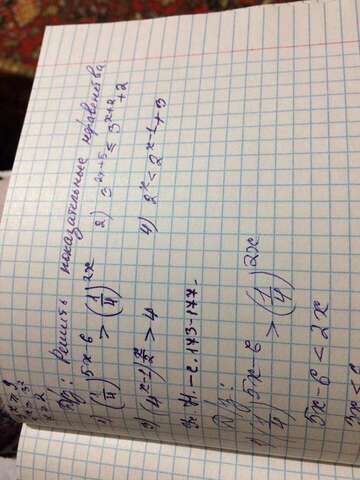 Решить показательные неравенства
1) (1/4)^5x-6 > (1/4)^2x 2) 3^2x+5 ≤ 3^x+2 + 2
3) (4^x-1)^x/2 > 4 4) 2^x < 2^x-1 + 3
с. 173-177.
Д/з:
1) (1/4)^5x-6 > (1/4)^2x
5x-6 < 2x